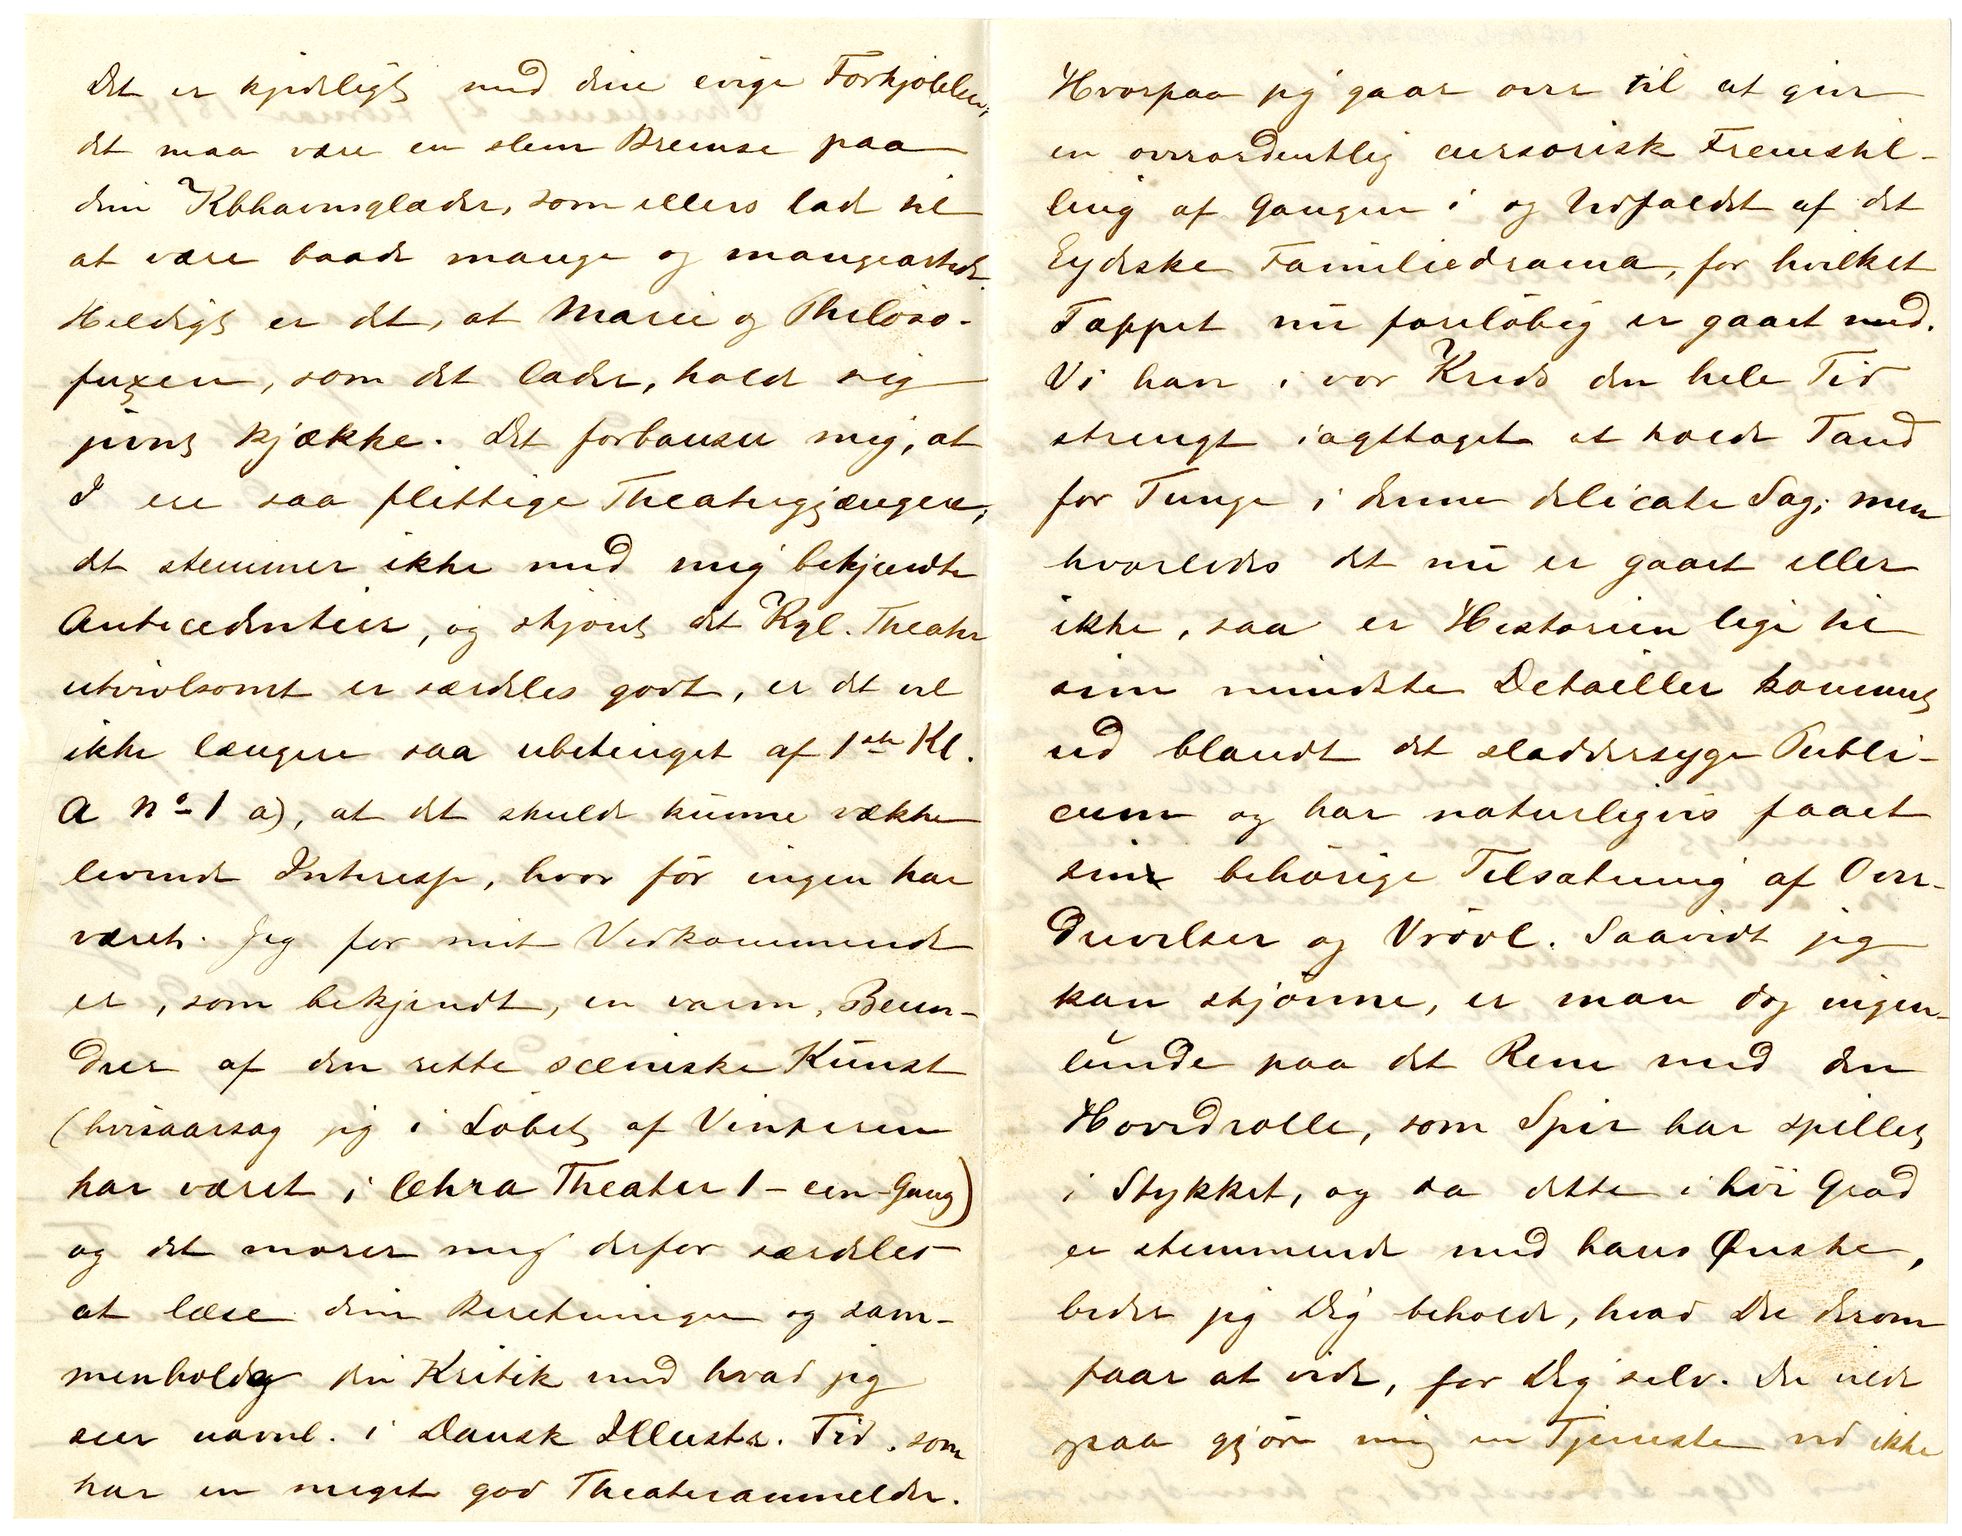 Det er kjedeligt med dine evige Forkjølelser,
det maa være en slem Bremse paa
din Kbhavnsglæder, som ellers lader til
at være baade mange og mangeartede.
Heldigt er det, at Marie og Philoso-
fuxen, som det lader, holde sig
jevnt kjække. Det forbauser mig, at
I ere saa flittige Theatergjængere;
det stemmer ikke med mig bekjendte
Antecedentier, og skjønt det Kgl. Theater
utvivlsomt er særdeles godt, er det vel
ikke længere saa ubetinget af 1ste Kl.
A No 1 a), at det skulde kunne vække
levende Interesse, hvor før ingen har
været. Jeg for mit Vedkommende
er, som bekjendt, en varm Beun-
drer af den rette sceniske Kunst
(hvisaarsag jeg i Løbet af Vinteren
har været i Chra Theater 1 - een - Gang)
og det morer mig derfor særdeles
at læse dine Beretninger og sam-
menholde din Kritik med hvad jeg
seer navnl. i Dansk Illustr. Tid. som
har en meget god Theateranmelder.
Hvorpaa jeg gaar over til at give
en overordentlig cursorisk Fremstil-
ling af Gangen i og Udfaldet af det
Eydeske Familiedrama, for hvilket
Tæppet nu foreløbig er gaaet ned.
Vi have i vor Kreds den hele Tid
strengt iagttaget at holde Tand
for Tunge i denne delicate Sag; men
hvorledes det nu er gaaet eller
ikke, saa er Historien lige til
sine mindste Detailler kommet
ud blandt det sladdersyge Publi-
cum og har naturligvis faaet
sin behørige Tilsætning af Over-
drivelser og Vrøvl. Saavidt jeg
kan skjønne, er man dog ingen-
lunde paa det Rene med den
Hovedrolle, som Spir har spillet
i Stykket, og da dette i høi Grad
er stemmende med hans Ønske,
beder jeg Dig beholde, hvad Du derom
faar at vide, for Dig selv. Du vilde
ogsaa gjøre mig en Tjeneste ved ikke